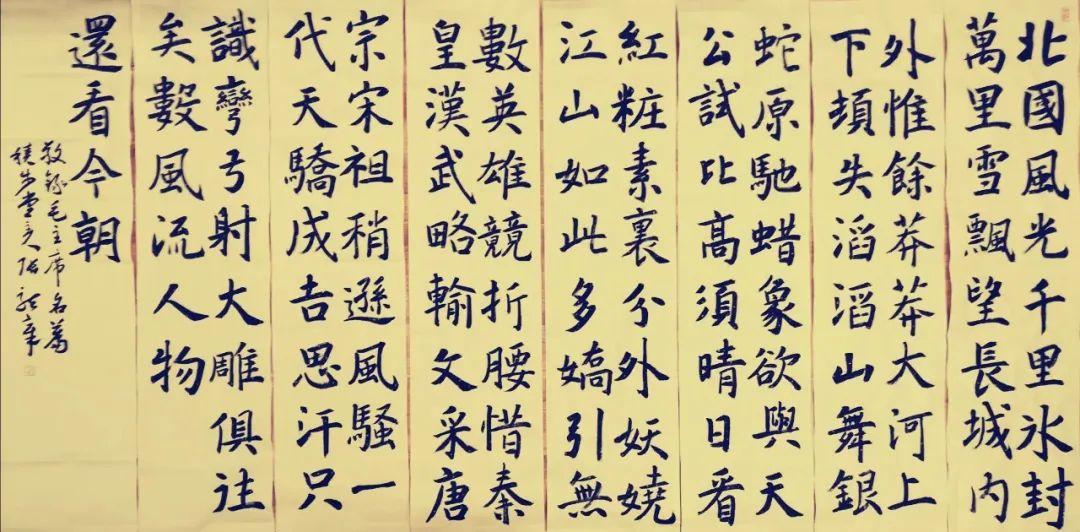 北國風光千里氷封
萬里雪飄望長城内
外惟餘莽莽大河上
下頓失滔滔山舞銀
蛇原馳蜡象欲與天
公試比高須晴日看
紅粧素裹分外妖嬈
江山如此多嬌引無
數英雄競折腰惜秦
皇漢武略輸文采唐
宗宋祖稍遜風騷一
代天驕成吉思汗只
識彎弓射大雕俱往
矣數風流人物
還看今朝
敬錄毛主席名篇